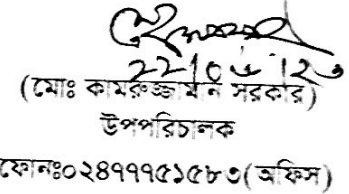 (মোঃ কামরুজ্জামান সরকার)
উপপরিচালক
ফোনঃ০২৪৭৭৭৫১৫৮৩(অফিস)